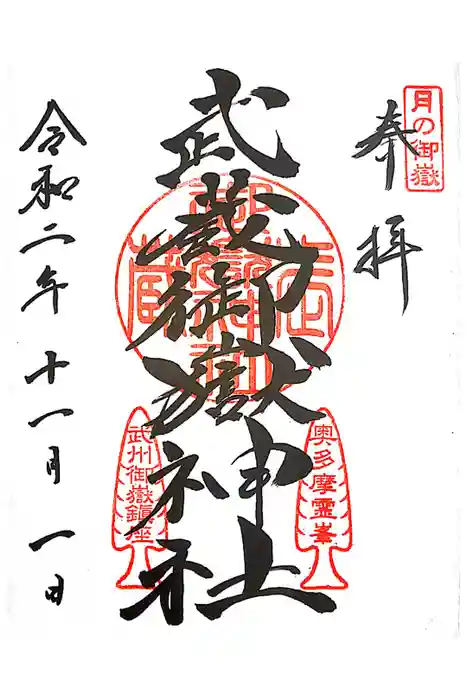 月の御嶽
奉拝
武蔵御嶽神社
奥多摩霊峯
武州御嶽鎮座
令和二年十一月一日